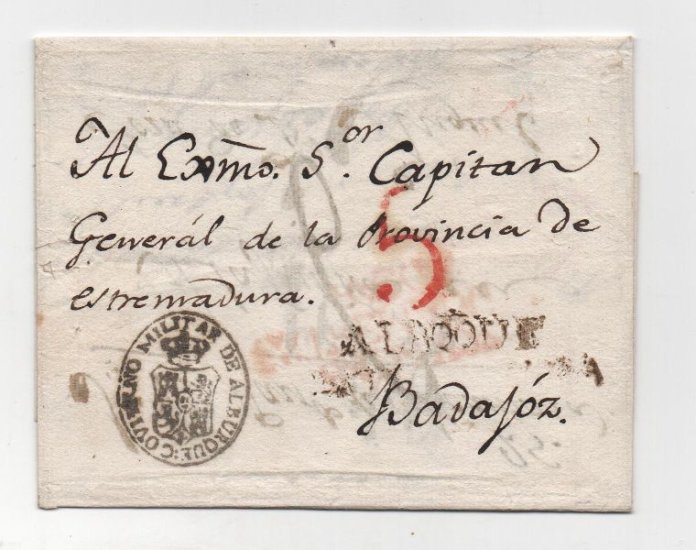 Al Exmo. S.or Capitan
General de la Provincia de
estremadura.
5
GOVIERNO MILITAR DE ALBURQUE:
ALBQUE
Badajóz.